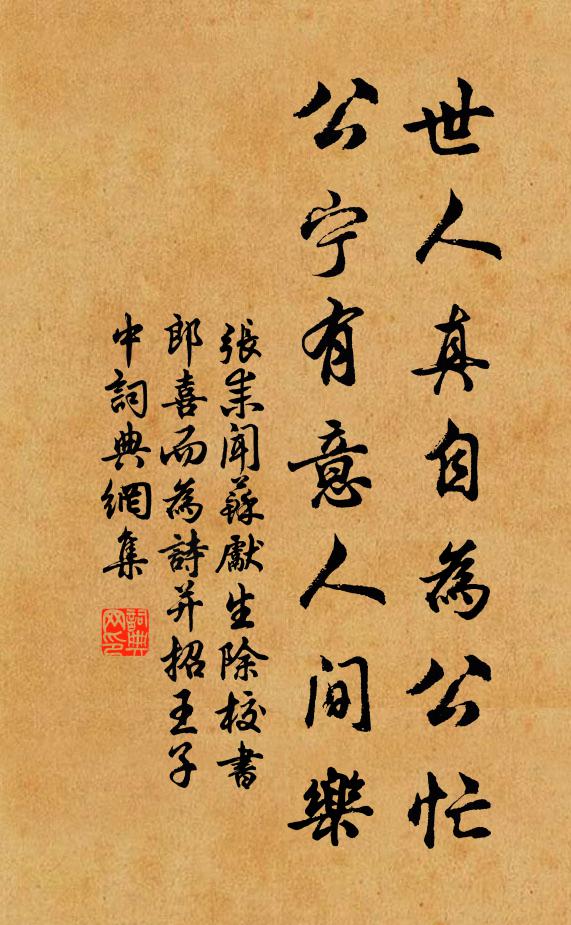 世人真自為公忙
公宁有意人間樂
張耒聞蘇獻生除校書
郎喜而為詩并招王子
中詞典網集
詞典
网印